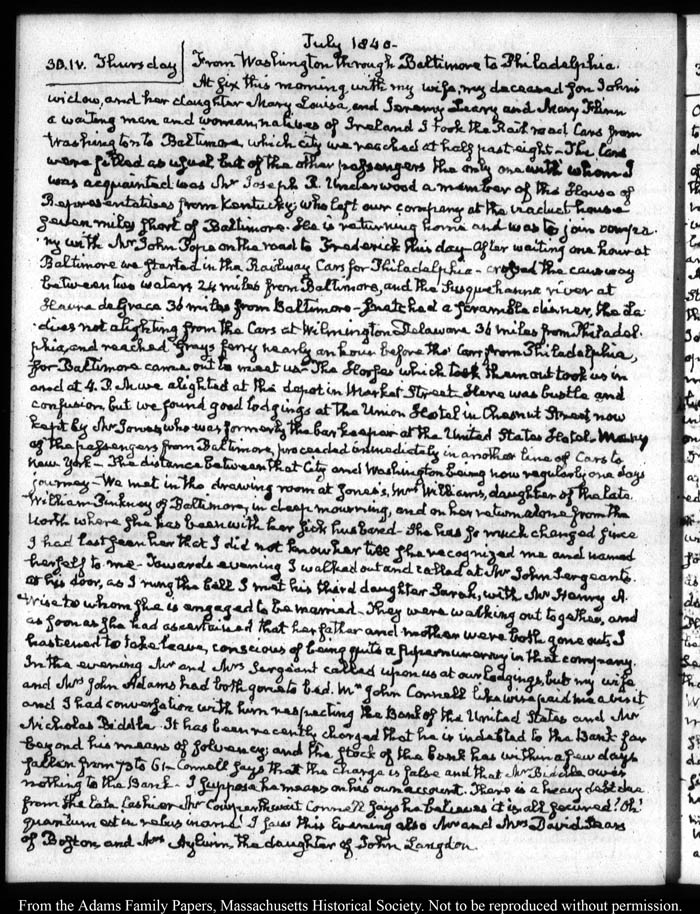 July 1840-
30. IV. Thursday
From Washington through Baltimore to Philadelphia.
At six this morning with my wife, my deceased son John's
widow, and her daughter Mary Louisa, and Jeremy Leary and Mary Flinn
a waiting man and woman, natives of Ireland I took the Rail road Cars from
Washington to Baltimore, which city we reached at half past eight- The Cars
were filled as usual but of the other passengers the only one with whom I
was acquainted was Mr Joseph R. Underwood a member of the House of
Representatives from Kentucky, who left our company at the viaduct house
seven miles short of Baltimore. He is returning home and was to join compa
ny with Mr John Pope on the road to Frederick this day- After waiting one hour at
Baltimore we started in the Railway Cars for Philadelphia- crossed the causeway
between two waters 24 miles from Baltimore, and the Susquehanna river at
Havre de Grace 36 miles from Baltimore- snatched a scramble dinner, the La
dies not alighting from the Cars at Wilmington Delaware 36 miles from Philadel-
phia, and reached Grays ferry nearly an hour before the Cars from Philadelphia,
for Baltimore came out to meet us- The Horses which took them out took us in
and at 4. P.M. we alighted at the depot in Market Street- Here was bustle and
confusion but we found good lodgings at the Union Hotel in Chesnut Street now
kept by Mr Jones, who was formerly the bar keeper at the United States Hotel- Many
of the passengers from Baltimore, proceeded immediately in another line of Cars to
New York- The distance between that City and Washington being now regularly one days
journey- We met in the drawing room at Jones's, Mrs Williams, daughter of the late
William Pinkney of Baltimore, in deep mourning, and on her return alone from the
North where she has been with her sick husband- She has so much changed since
I had last seen her that I did not know her till she recognized me and named
herself to me- Towards evening I walked out and called at Mr John Sergeant's.
at his door, as I rung the bell I met his third daughter Sarah, with Mr Henry A.
Wise to whom she is engaged to be married- They were walking out together, and
as soon as she had ascertained that her father and mother were both gone out, I
hastened to take leave, conscious of being quite a supernumerary in that company.
In the evening Mr and Mrs Sergeant called upon us at our lodgings, but my wife
and Mrs John Adams had both gone to bed. Mr John Connell likewise paid me a visit
and I had conversation with him respecting the Bank of the United States and Mr
Nicholas Biddle. It has been recently charged that he is indebted to the Bank far
beyond his means of solvency; and the stock of the bank has within a few days
fallen from 75 to 61- Connell says that the charge is false and that Mr Biddle owes
nothing to the Bank- I suppose he means on his own account. There is a heavy debt due
from the late Cashier Mr Cowperthwait Connell says he believes it is all secured! Oh!
quantum est in rebus inane! I saw this Evening also Mr and Mrs David Sears
of Boston, and Mrs Aylwin, the daughter of John Langdon.
From the Adams Family Papers, Massachusetts Historical Society. Not to be reproduced without permission.